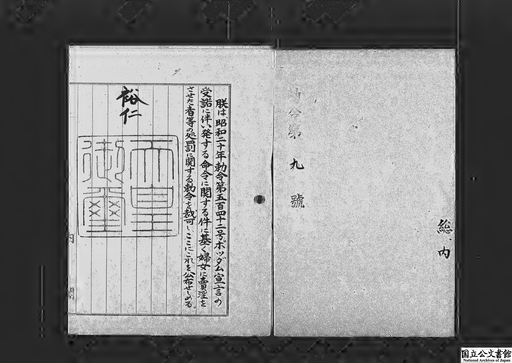 勅令第九號
総、内
朕は昭和二十年勅令第五百四十二号ポツダム宣言の
受諾に伴い発する命令に関する件に基く婦女に賣淫を
させた者等の処罰に関する勅令を裁可し、ここにこれを公布せしめる。
裕仁
天皇
御璽
内閣
国立公文書館
National Archives of Japan